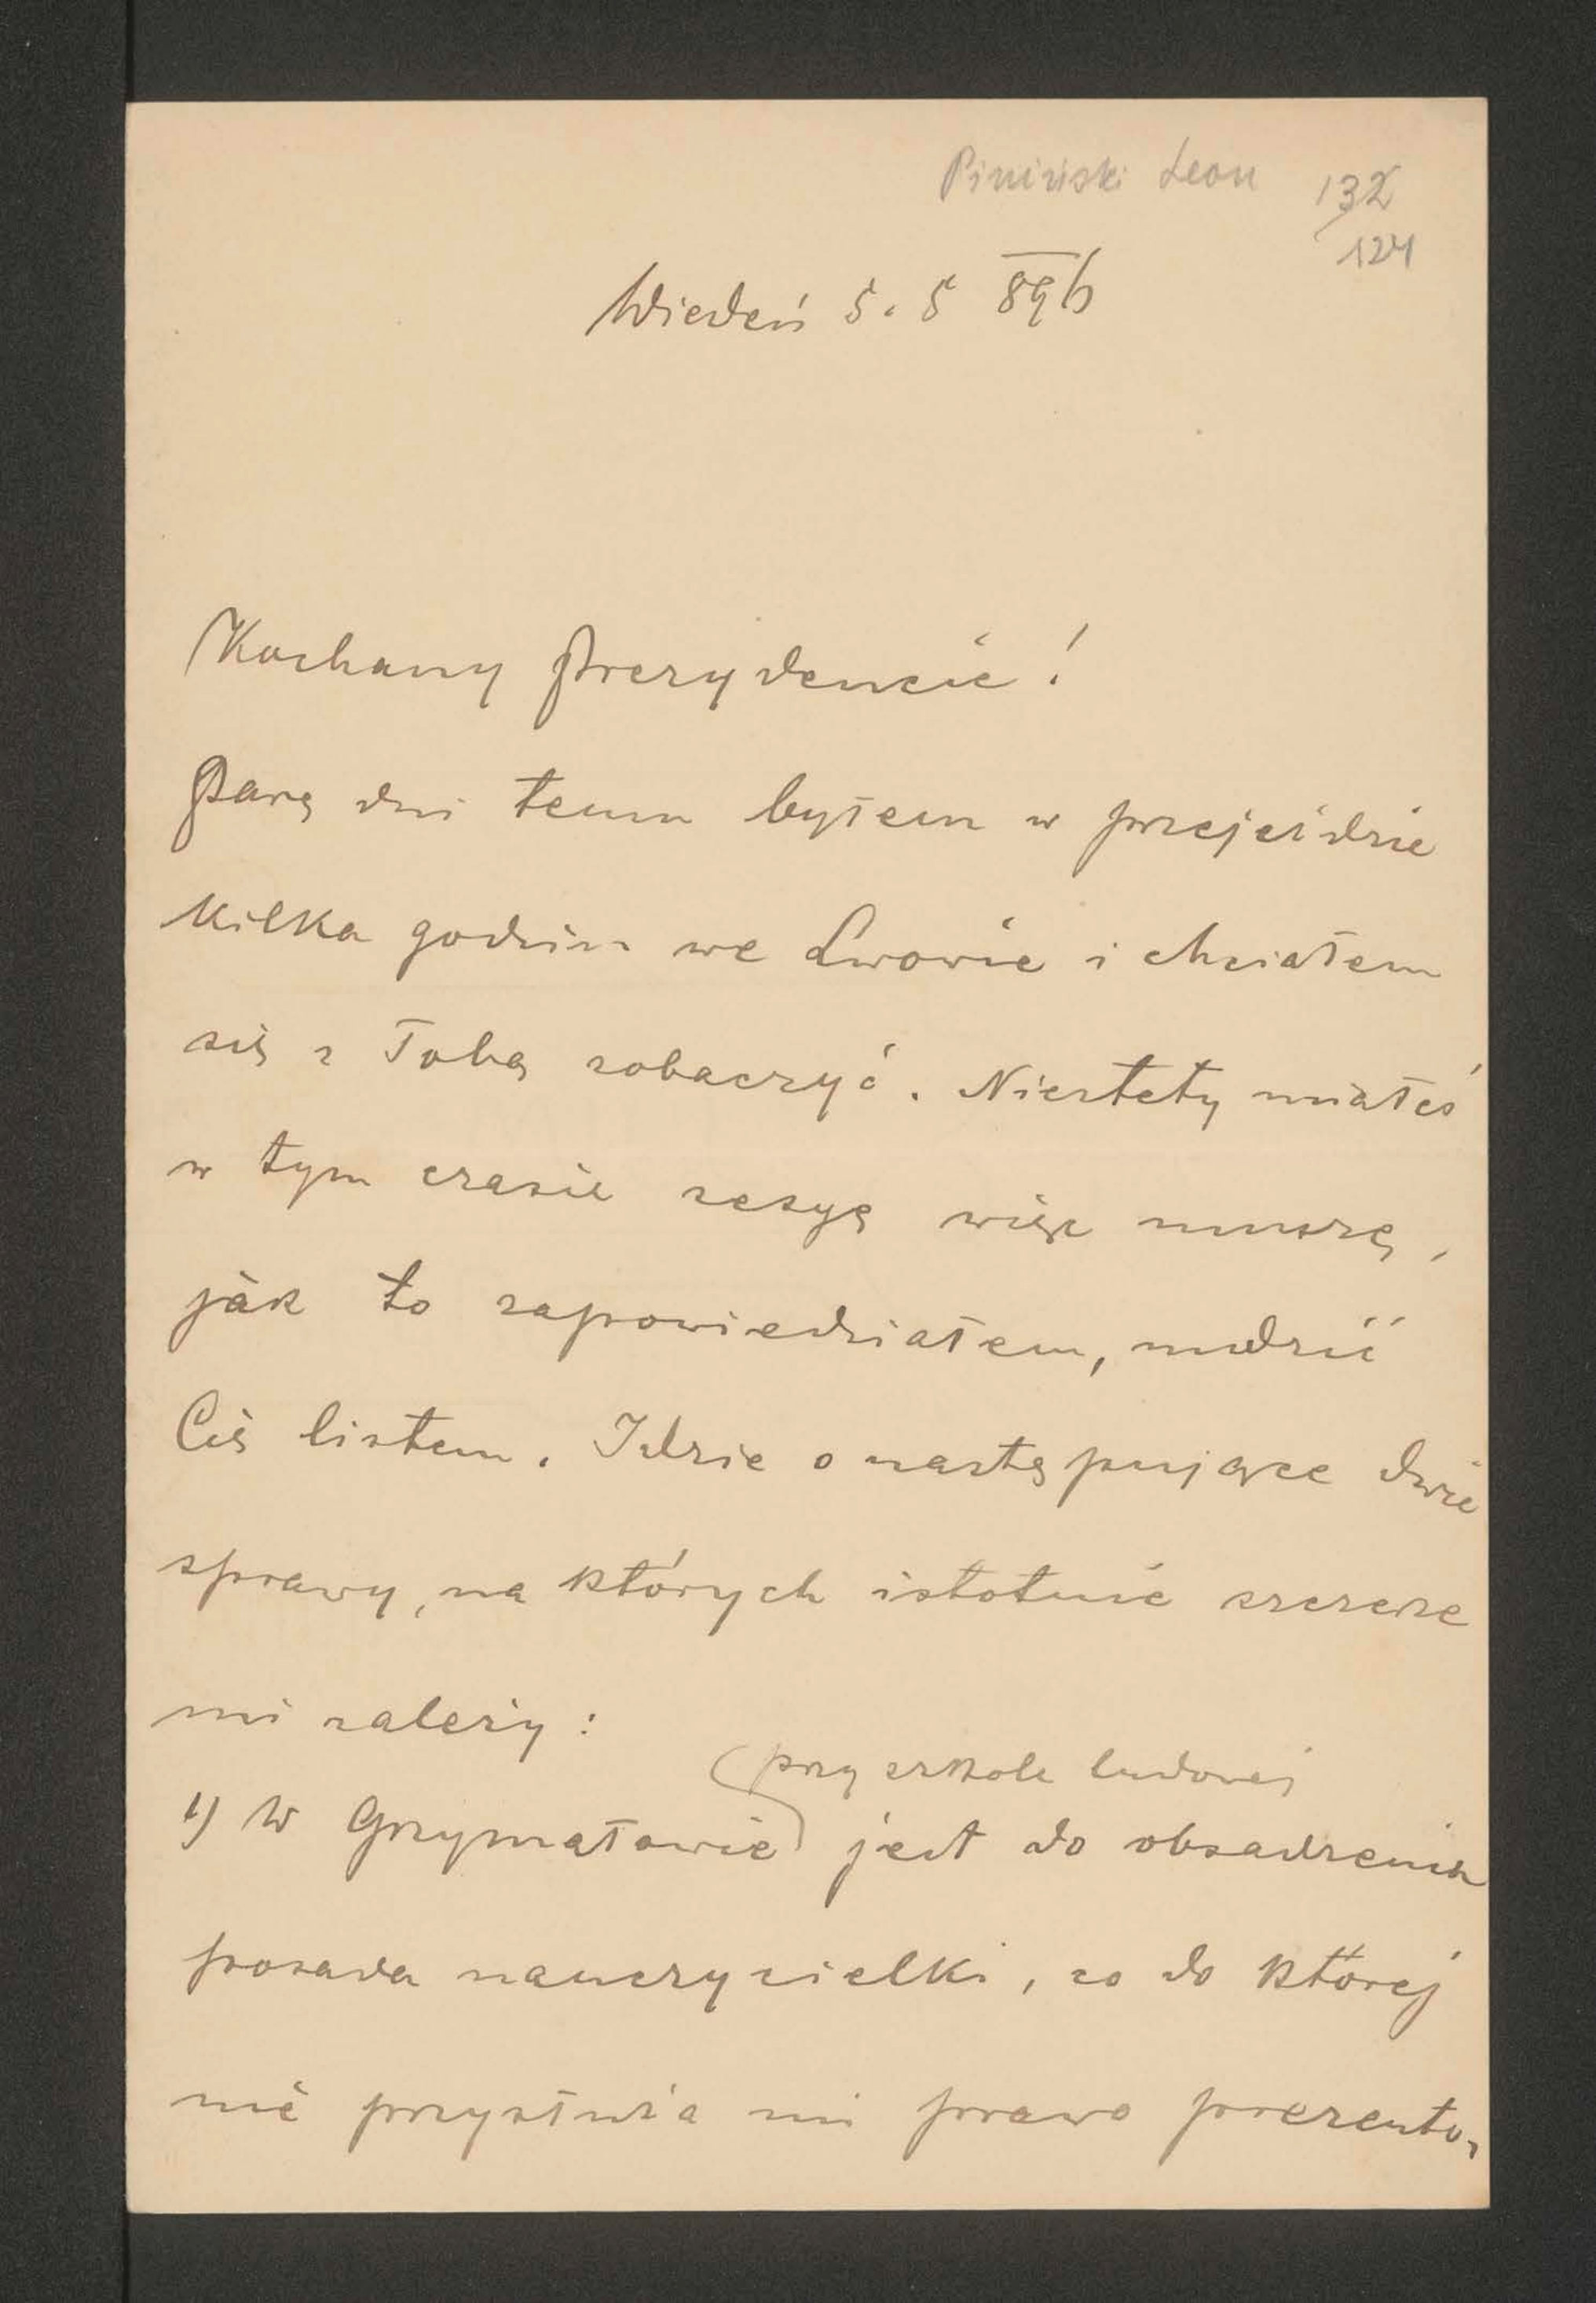 Piniński Leon 132
124
Wiedeń 5. 5 896
Kochany Prezydencie!
Parę dni temu byłem w przejeździe
kilka godzin we Lwowie i chciałem
się z Tobą zobaczyć. Niestety miałeś
w tym czasie sesyę więc muszę,
jak to zapowiedziałem, nudzić
Cię listem. Idzie o następujące dwie
sprawy, na których istotnie szczerze
mi zależy:
przy szkole ludowej
1) W Grzymałowie jest do obsadzenia
posada nauczycielki, co do której
nie przysłuża mi prawo prezento-